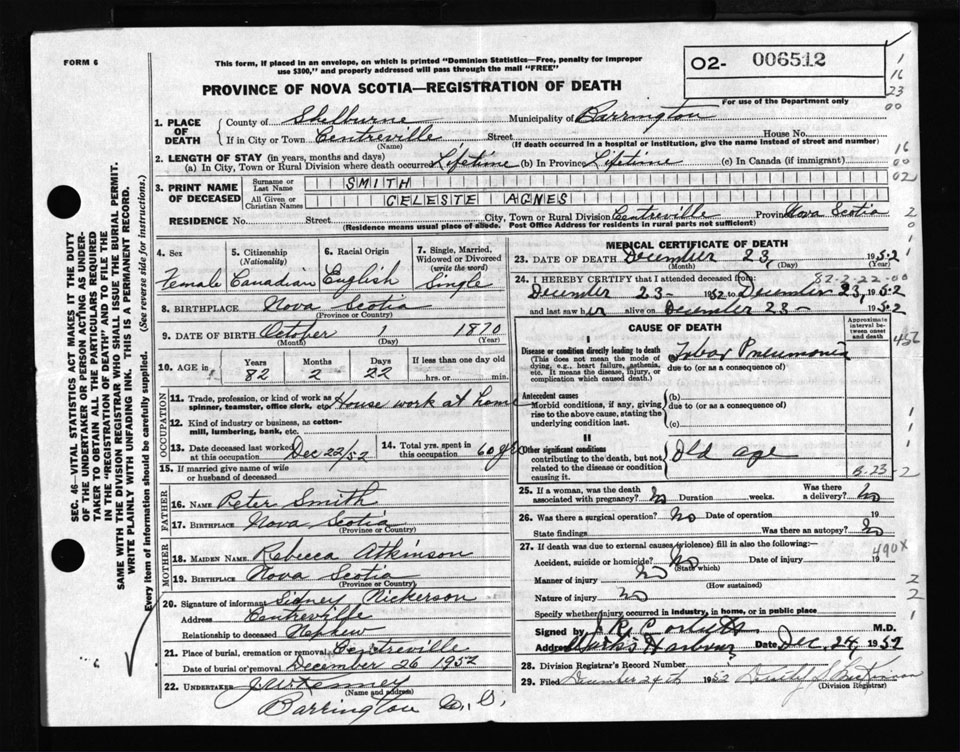 FORM 6
This form, if placed in an envelope, on which is printed "Dominion Statistics—Free, penalty for improper
use $300," and properly addressed will pass through the mail "FREE"
O2- 006512
PROVINCE OF NOVA SCOTIA—REGISTRATION OF DEATH
For use of the Department only
1. PLACE OF DEATH
County of Shelburne Municipality of Barrington
If in City or Town Centreville Street House No.
(Name) (If death occurred in a hospital or institution, give the name instead of street and number)
2. LENGTH OF STAY (in years, months and days)
(a) In City, Town or Rural Division where death occurred Lifetime (b) In Province Lifetime (c) In Canada (if immigrant)
3. PRINT NAME OF DECEASED
Surname or Last Name SMITH
All Given or Christian Names CELESTE AGNES
RESIDENCE No. Street City, Town or Rural Division Centreville Province Nova Scotia
(Residence means usual place of abode. Post Office Address for residents in rural parts not sufficient)
4. Sex Female
5. Citizenship (Nationality) Canadian
6. Racial Origin English
7. Single, Married, Widowed or Divorced (write the word) Single
8. BIRTHPLACE Nova Scotia
(Province or Country)
9. DATE OF BIRTH October 1 1870
(Month) (Day) (Year)
10. AGE in Years 82 Months 2 Days 22 If less than one day old
hrs. or min.
OCCUPATION
11. Trade, profession, or kind of work as spinner, teamster, office clerk, etc. House work at home
12. Kind of industry or business, as cotton-mill, lumbering, bank, etc.
13. Date deceased last worked at this occupation Dec 22/52
14. Total yrs. spent in this occupation 60 yrs
15. If married give name of wife or husband of deceased
FATHER
16. Name Peter Smith
17. Birthplace Nova Scotia
(Province or Country)
MOTHER
18. Maiden Name Rebecca Atkinson
19. Birthplace Nova Scotia
(Province or Country)
20. Signature of informant Sidney Nickerson
Address Centreville
Relationship to deceased Nephew
21. Place of burial, cremation or removal Centreville
Date of burial or removal December 26 1952
22. UNDERTAKER J.W. Kenney
(Name and address)
Barrington
MEDICAL CERTIFICATE OF DEATH
23. DATE OF DEATH December 23, 1952
(Month) (Day) (Year)
82-2-22-00
24. I HEREBY CERTIFY that I attended deceased from
December 23- 1952 to December 23, 1952
and last saw her alive on December 23- 1952
CAUSE OF DEATH
Approximate interval between onset and death
I
Disease or condition directly leading to death
(This does not mean the mode of dying, e.g., heart failure, asthenia, etc. It means the disease, injury, or complication which caused death.)
(a) Lobar Pneumonia
due to (or as a consequence of)
Antecedent causes
Morbid conditions, if any, giving rise to the above cause, stating the underlying condition last.
(b)
due to (or as a consequence of)
(c)
II
Other significant conditions
contributing to the death, but not related to the disease or condition causing it.
Old age
25. If a woman, was the death associated with pregnancy? No Duration weeks. Was there a delivery? No
26. Was there a surgical operation? No Date of operation 19
State findings Was there an autopsy? No
27. If death was due to external causes (violence) fill in also the following:—
490X
Accident, suicide or homicide? No Date of injury 19
(State which)
Manner of injury No
(How sustained)
Nature of injury No
Specify whether injury occurred in industry, in home, or in public place
Signed by M.D.
Address Clarks Harbour Date Dec. 24, 1952
28. Division Registrar's Record Number
29. Filed December 24th 1952
(Division Registrar)
SEC. 46—VITAL STATISTICS ACT MAKES IT THE DUTY
OF THE UNDERTAKER OR PERSON ACTING AS UNDER-
TAKER TO OBTAIN ALL THE PARTICULARS REQUIRED
IN THE "REGISTRATION OF DEATH" AND TO FILE THE
SAME WITH THE DIVISION REGISTRAR WHO SHALL ISSUE THE BURIAL PERMIT.
WRITE PLAINLY WITH UNFADING INK. THIS IS A PERMANENT RECORD.
Every item of information should be carefully supplied. (See reverse side for instructions.)